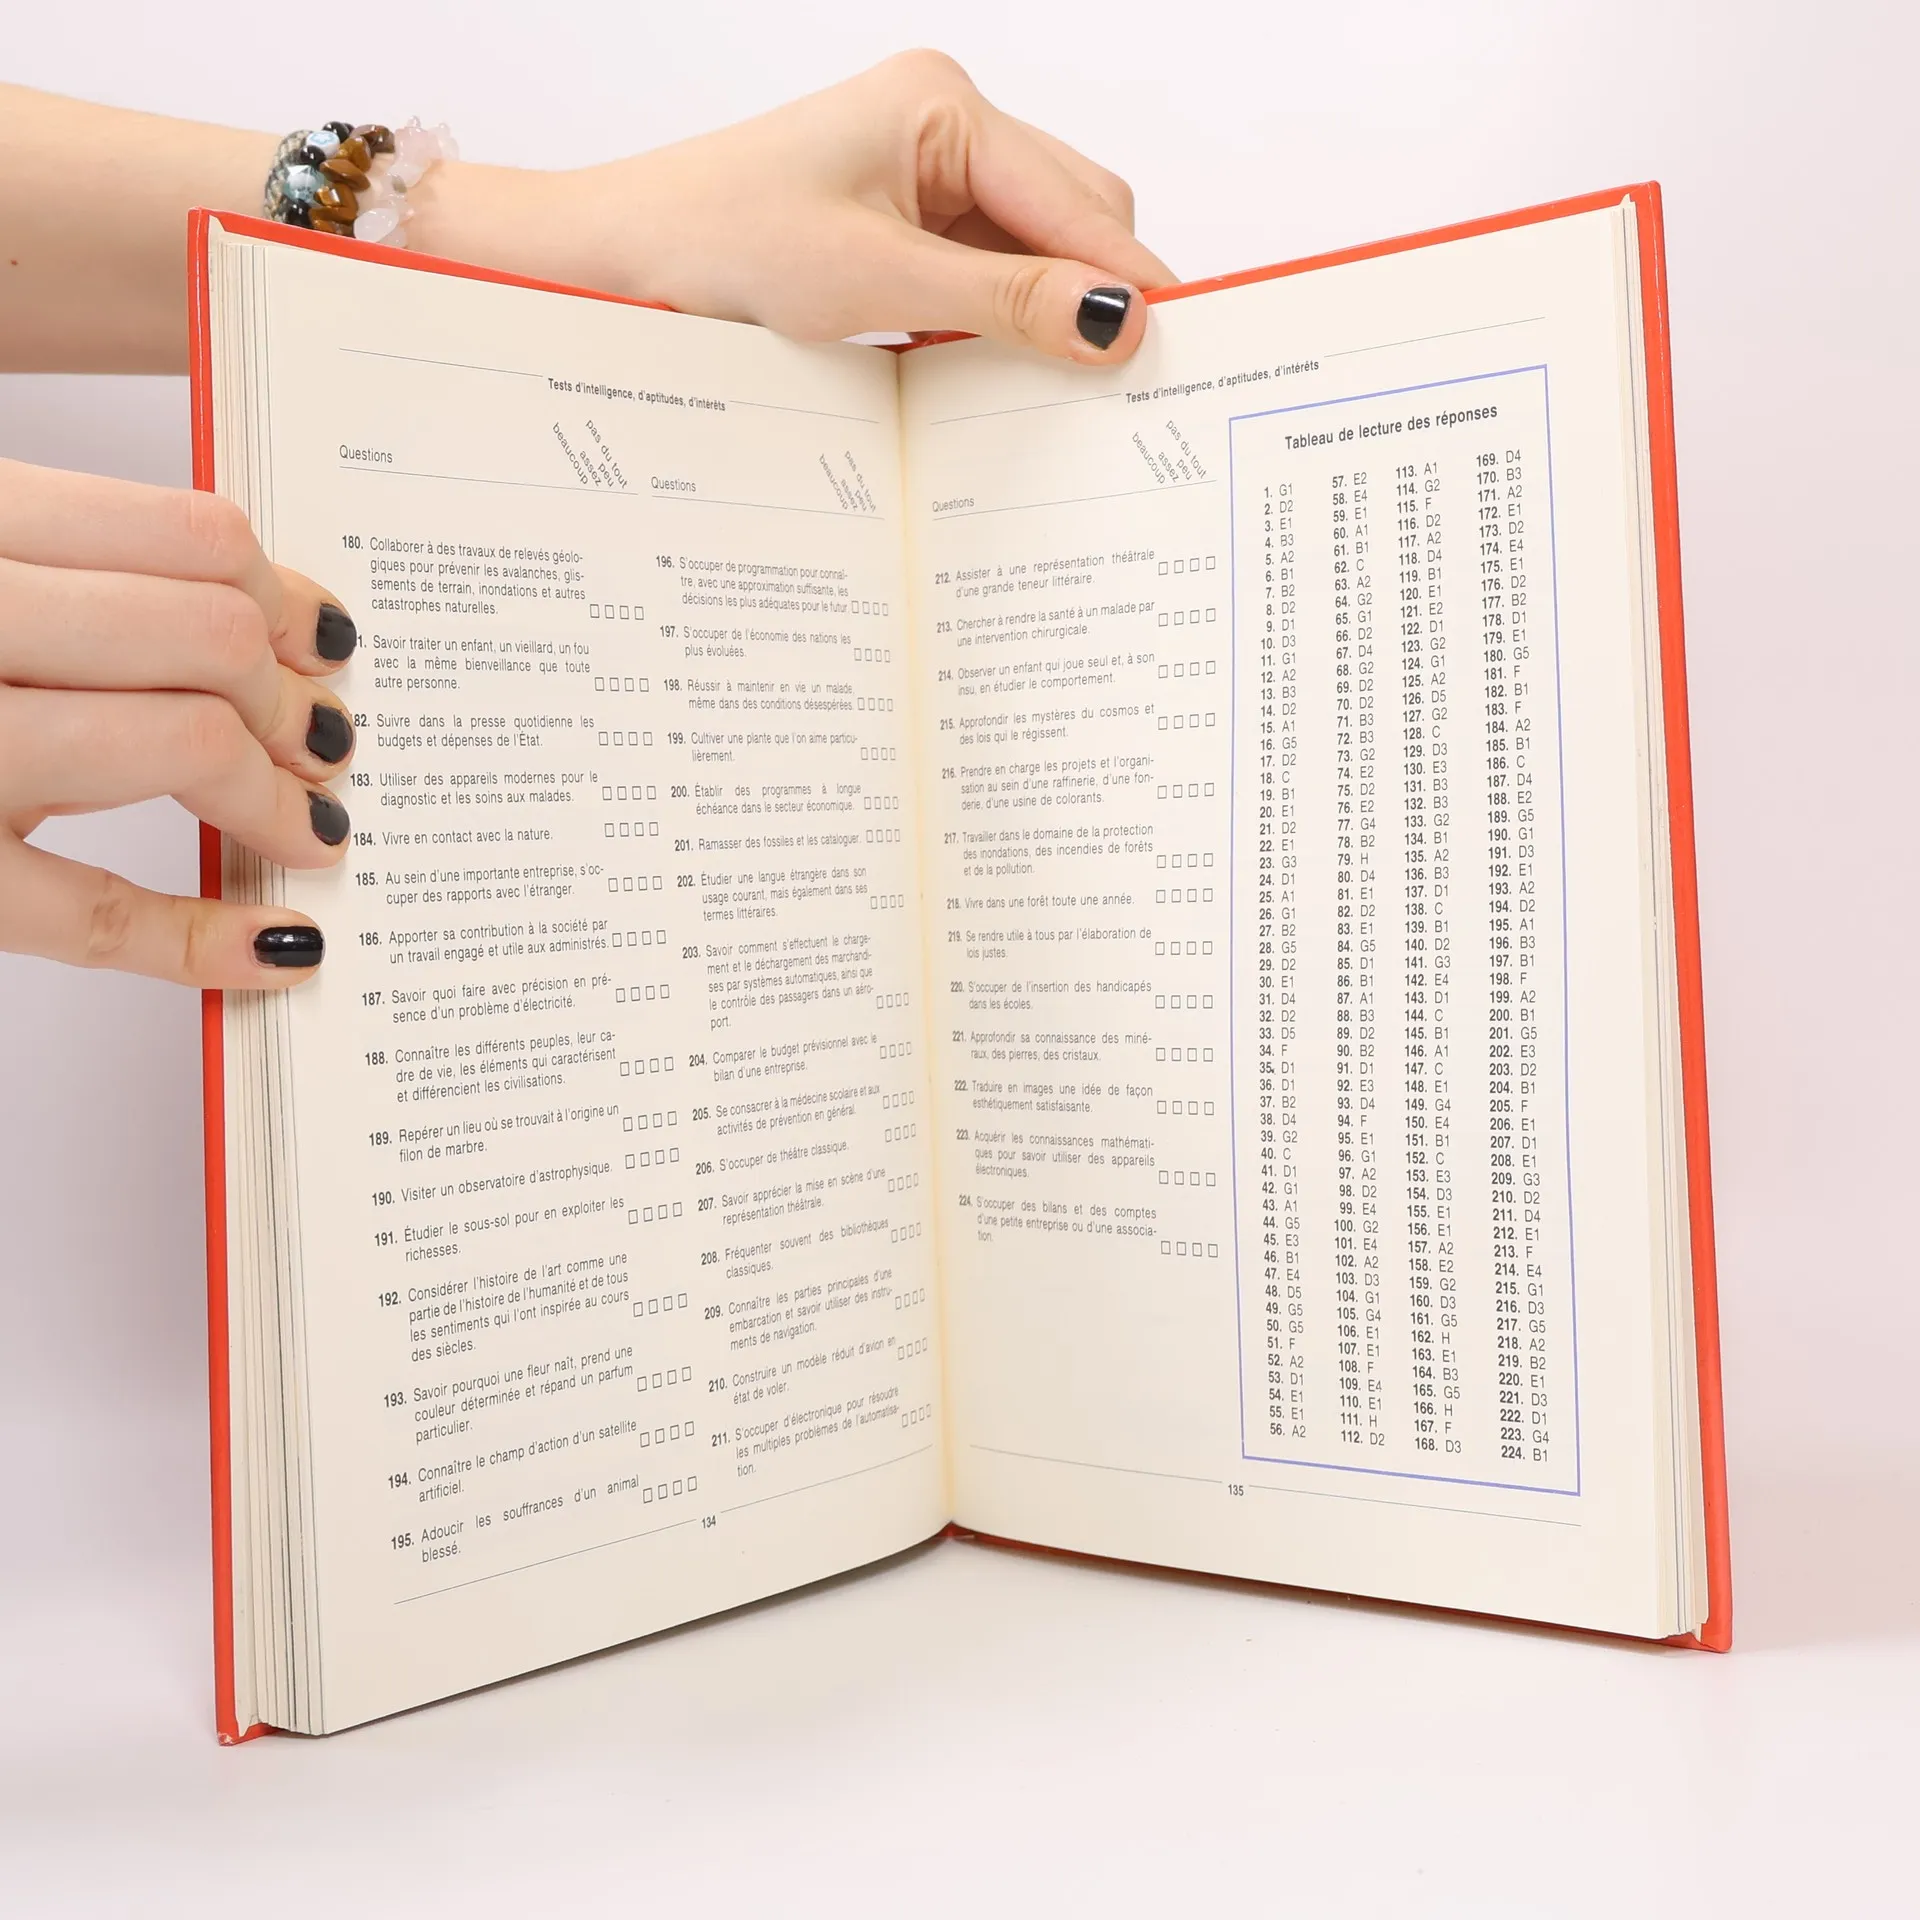 Tests d'intelligence, d'aptitudes, d'intérêts
Questions
pas du tout
peu
assez
beaucoup
180. Collaborer à des travaux de relevés géolo-
giques pour prévenir les avalanches, glis-
sements de terrain, inondations et autres
catastrophes naturelles.
1. Savoir traiter un enfant, un vieillard, un fou
avec la même bienveillance que toute
autre personne.
82. Suivre dans la presse quotidienne les
budgets et dépenses de l'État.
183. Utiliser des appareils modernes pour le
diagnostic et les soins aux malades.
184. Vivre en contact avec la nature.
185. Au sein d'une importante entreprise, s'oc-
cuper des rapports avec l'étranger.
186. Apporter sa contribution à la société par
un travail engagé et utile aux administrés.
187. Savoir quoi faire avec précision en pré-
sence d'un problème d'électricité.
188. Connaître les différents peuples, leur ca-
dre de vie, les éléments qui caractérisent
et différencient les civilisations.
189. Repérer un lieu où se trouvait à l'origine un
filon de marbre.
190. Visiter un observatoire d'astrophysique.
191. Étudier le sous-sol pour en exploiter les
richesses.
192. Considérer l'histoire de l'art comme une
partie de l'histoire de l'humanité et de tous
les sentiments qui l'ont inspirée au cours
des siècles.
193. Savoir pourquoi une fleur naît, prend une
couleur déterminée et répand un parfum
particulier.
194. Connaître le champ d'action d'un satellite
artificiel.
195. Adoucir les souffrances d'un animal
blessé.
Questions
pas du tout
peu
assez
beaucoup
196. S'occuper de programmation pour connaî-
tre, avec une approximation suffisante, les
décisions les plus adéquates pour le futur.
197. S'occuper de l'économie des nations les
plus évoluées.
198. Réussir à maintenir en vie un malade,
même dans des conditions désespérées.
199. Cultiver une plante que l'on aime particu-
lièrement.
200. Établir des programmes à longue
échéance dans le secteur économique.
201. Ramasser des fossiles et les cataloguer.
202. Étudier une langue étrangère dans son
usage courant, mais également dans ses
termes littéraires.
203. Savoir comment s'effectuent le charge-
ment et le déchargement des marchandi-
ses par systèmes automatiques, ainsi que
le contrôle des passagers dans un aéro-
port.
204. Comparer le budget prévisionnel avec le
bilan d'une entreprise.
205. Se consacrer à la médecine scolaire et aux
activités de prévention en général.
206. S'occuper de théâtre classique.
207. Savoir apprécier la mise en scène d'une
représentation théâtrale.
208. Fréquenter souvent des bibliothèques
classiques.
209. Connaître les parties principales d'une
embarcation et savoir utiliser des instru-
ments de navigation.
210. Construire un modèle réduit d'avion en
état de voler.
211. S'occuper d'électronique pour résoudre
les multiples problèmes de l'automatisa-
tion.
134
Tests d'intelligence, d'aptitudes, d'intérêts
Questions
pas du tout
peu
assez
beaucoup
212. Assister à une représentation théâtrale
d'une grande teneur littéraire.
213. Chercher à rendre la santé à un malade par
une intervention chirurgicale.
214. Observer un enfant qui joue seul et, à son
insu, en étudier le comportement.
215. Approfondir les mystères du cosmos et
des lois qui le régissent.
216. Prendre en charge les projets et l'organi-
sation au sein d'une raffinerie, d'une fon-
derie, d'une usine de colorants.
217. Travailler dans le domaine de la protection
des inondations, des incendies de forêts
et de la pollution.
218. Vivre dans une forêt toute une année.
219. Se rendre utile à tous par l'élaboration de
lois justes.
220. S'occuper de l'insertion des handicapés
dans les écoles.
221. Approfondir sa connaissance des miné-
raux, des pierres, des cristaux.
222. Traduire en images une idée de façon
esthétiquement satisfaisante.
223. Acquérir les connaissances mathémati-
ques pour savoir utiliser des appareils
électroniques.
224. S'occuper des bilans et des comptes
d'une petite entreprise ou d'une associa-
tion.
Tableau de lecture des réponses
1. G1
2. D2
3. E1
4. B3
5. A2
6. B1
7. B2
8. D2
9. D1
10. D3
11. G1
12. A2
13. B3
14. D2
15. A1
16. G5
17. D2
18. C
19. B1
20. E1
21. D2
22. E1
23. G3
24. D1
25. A1
26. G1
27. B2
28. G5
29. D2
30. E1
31. D4
32. D2
33. D5
34. F
35. D1
36. D1
37. B2
38. D4
39. G2
40. C
41. D1
42. G1
43. A1
44. G5
45. E3
46. B1
47. E4
48. D5
49. G5
50. G5
51. F
52. A2
53. D1
54. E1
55. E1
56. A2
57. E2
58. E4
59. E1
60. A1
61. B1
62. C
63. A2
64. G2
65. G1
66. D2
67. D4
68. G2
69. D2
70. D2
71. B3
72. B3
73. G2
74. E2
75. D2
76. E2
77. G4
78. B2
79. H
80. D4
81. E1
82. D2
83. E1
84. G5
85. D1
86. B1
87. A1
88. B3
89. D2
90. B2
91. D1
92. E3
93. D4
94. F
95. E1
96. G1
97. A2
98. D2
99. E4
100. G2
101. E4
102. A2
103. D3
104. G1
105. G4
106. E1
107. E1
108. F
109. E4
110. E1
111. H
112. D2
113. A1
114. G2
115. F
116. D2
117. A2
118. D4
119. B1
120. E1
121. E2
122. D1
123. G2
124. G1
125. A2
126. D5
127. G2
128. C
129. D3
130. E3
131. B3
132. B3
133. G2
134. B1
135. A2
136. B3
137. D1
138. C
139. B1
140. D2
141. G3
142. E4
143. D1
144. C
145. B1
146. A1
147. C
148. E1
149. G4
150. E4
151. B1
152. C
153. E3
154. D3
155. E1
156. E1
157. A2
158. E2
159. G2
160. D3
161. G5
162. H
163. E1
164. B3
165. G5
166. H
167. F
168. D3
169. D4
170. B3
171. A2
172. E1
173. D2
174. E4
175. E1
176. D2
177. B2
178. D1
179. E1
180. G5
181. F
182. B1
183. F
184. A2
185. B1
186. C
187. D4
188. E2
189. G5
190. G1
191. D3
192. E1
193. A2
194. D2
195. A1
196. B3
197. B1
198. F
199. A2
200. B1
201. G5
202. E3
203. D2
204. B1
205. F
206. E1
207. D1
208. E1
209. G3
210. D2
211. D4
212. E1
213. F
214. E4
215. G1
216. D3
217. G5
218. A2
219. B2
220. E1
221. D3
222. D1
223. G4
224. B1
135